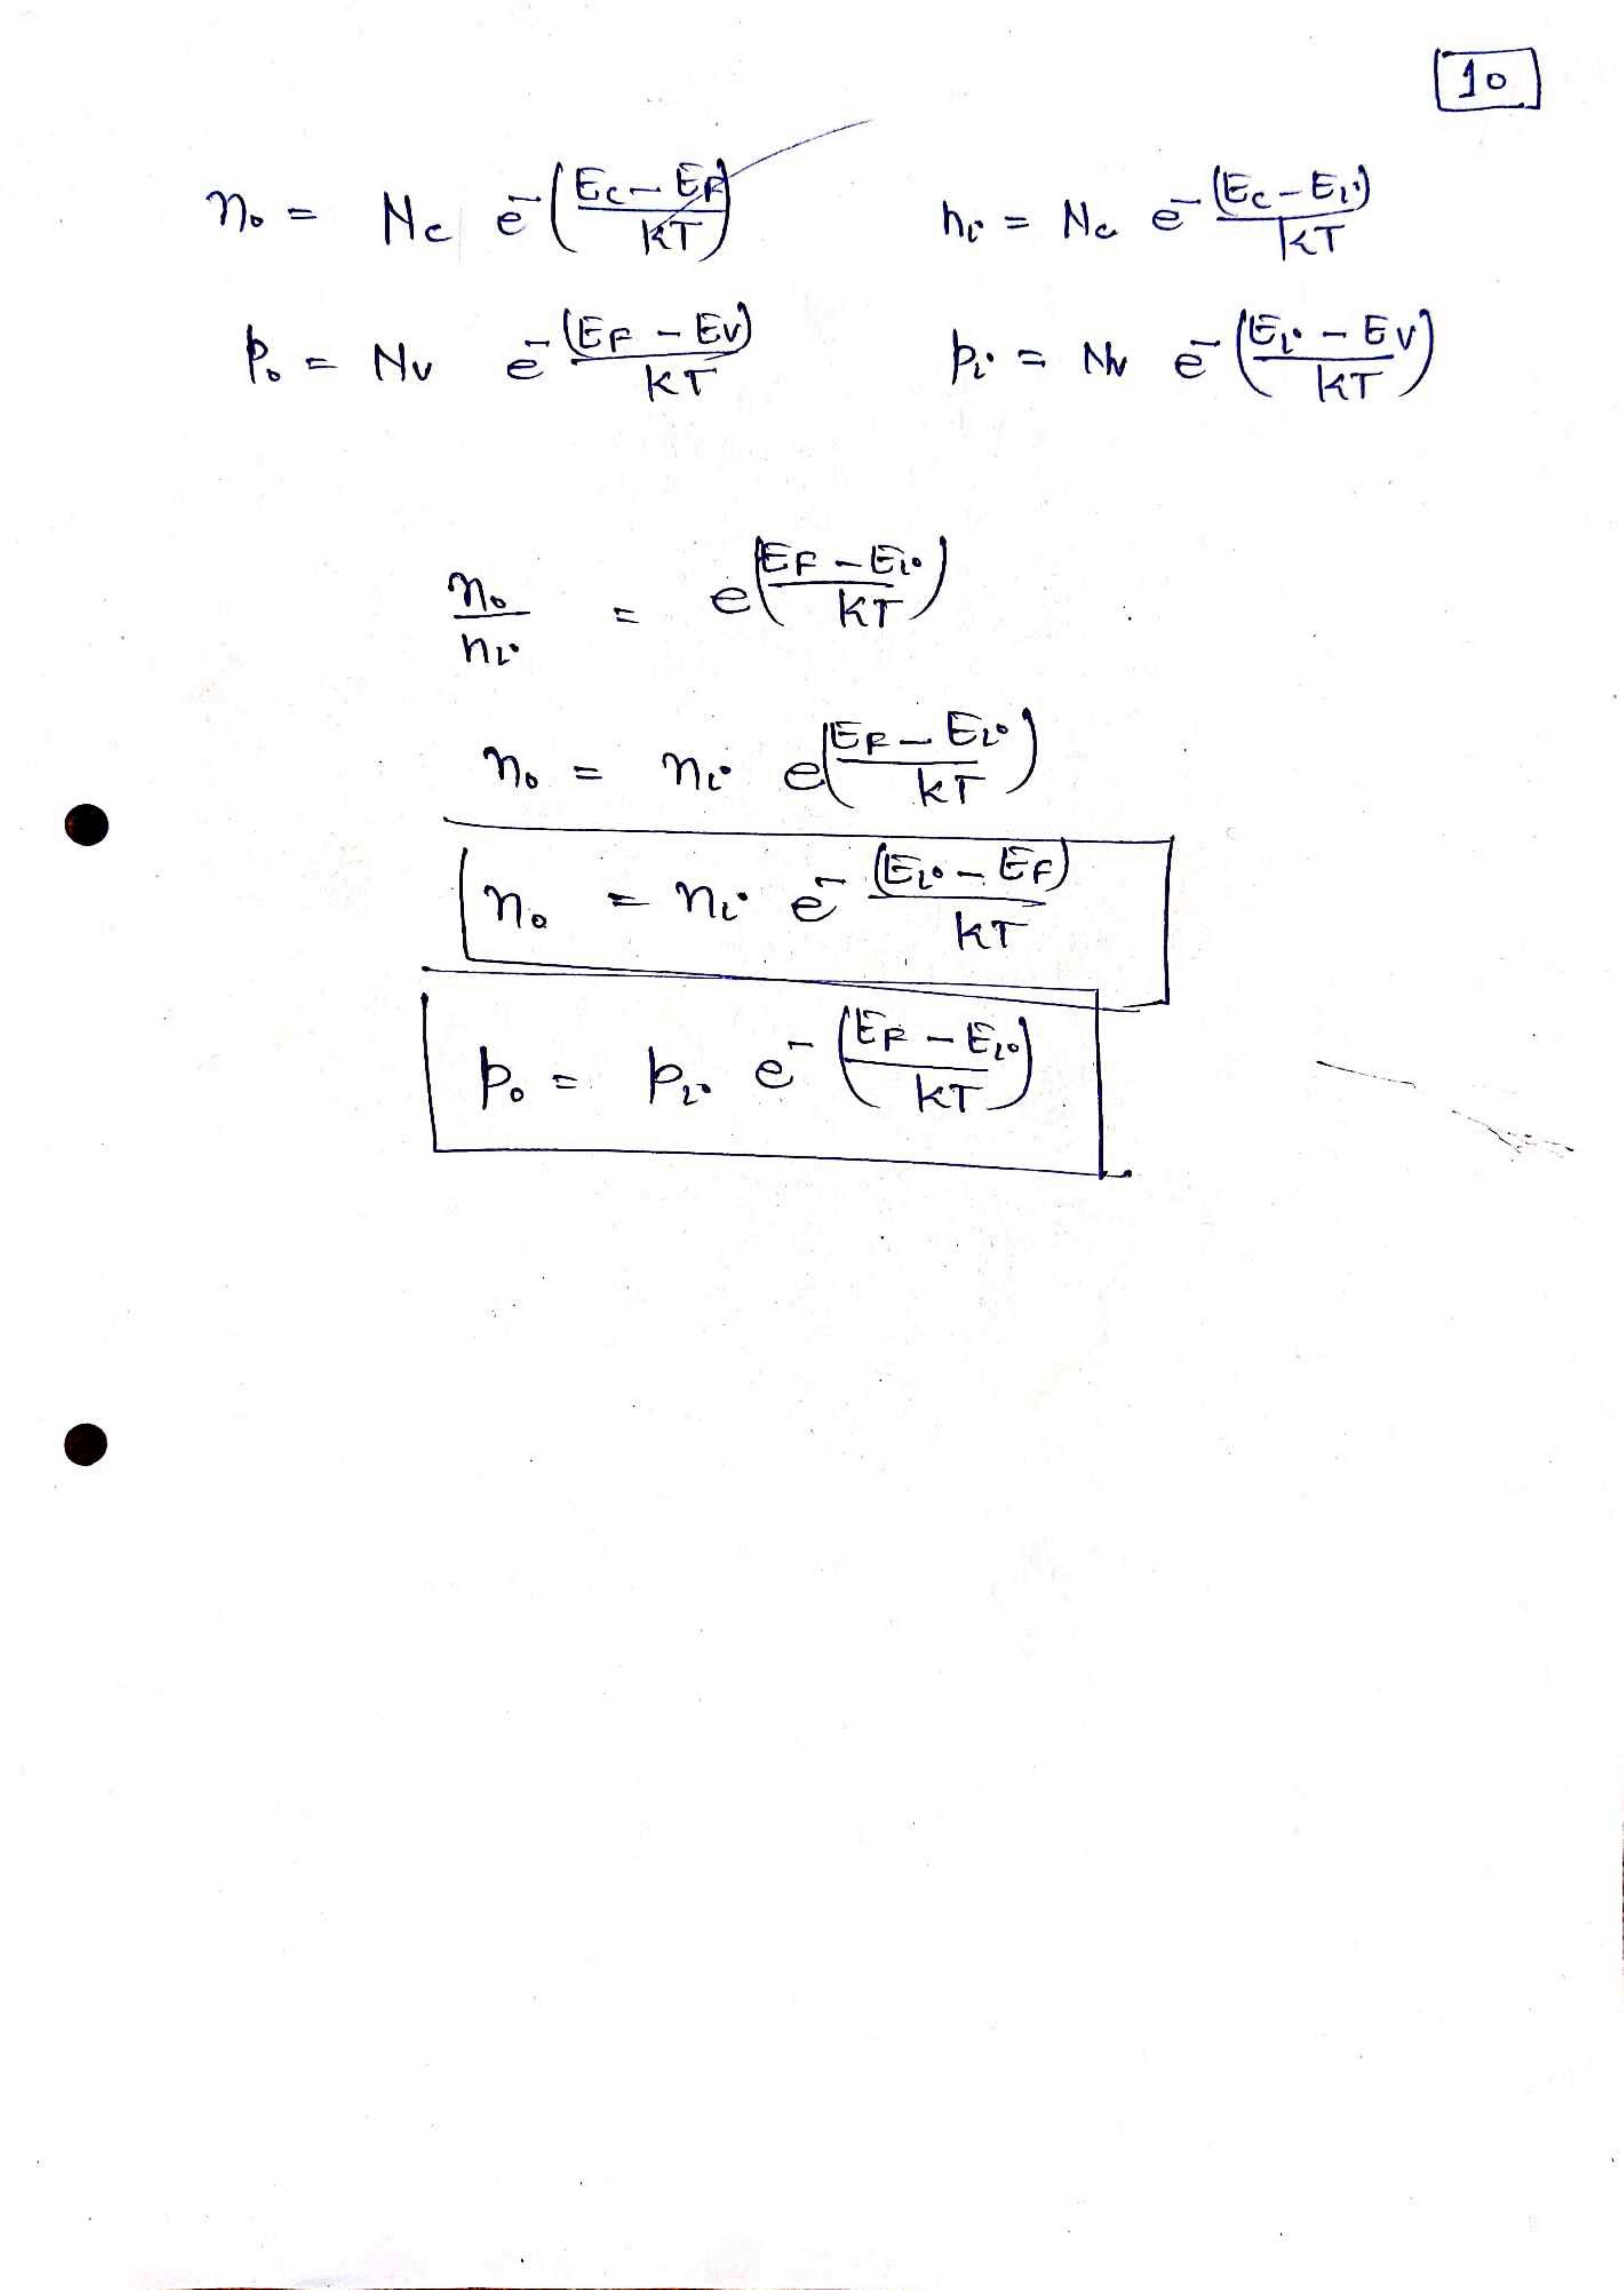 10
n₀ = N_c e^-((E_c - E_F)/KT) n_i = N_c e^-(E_c - E_i)/KT
p₀ = N_v e^-(E_F - E_v)/KT p_i = N_v e^-((E_i - E_v)/KT)
n₀/n_i = e^((E_F - E_i)/KT)
n₀ = n_i e^((E_F - E_i)/KT)
n₀ = n_i e^-(E_i - E_F)/KT
p₀ = p_i e^-((E_F - E_i)/KT)